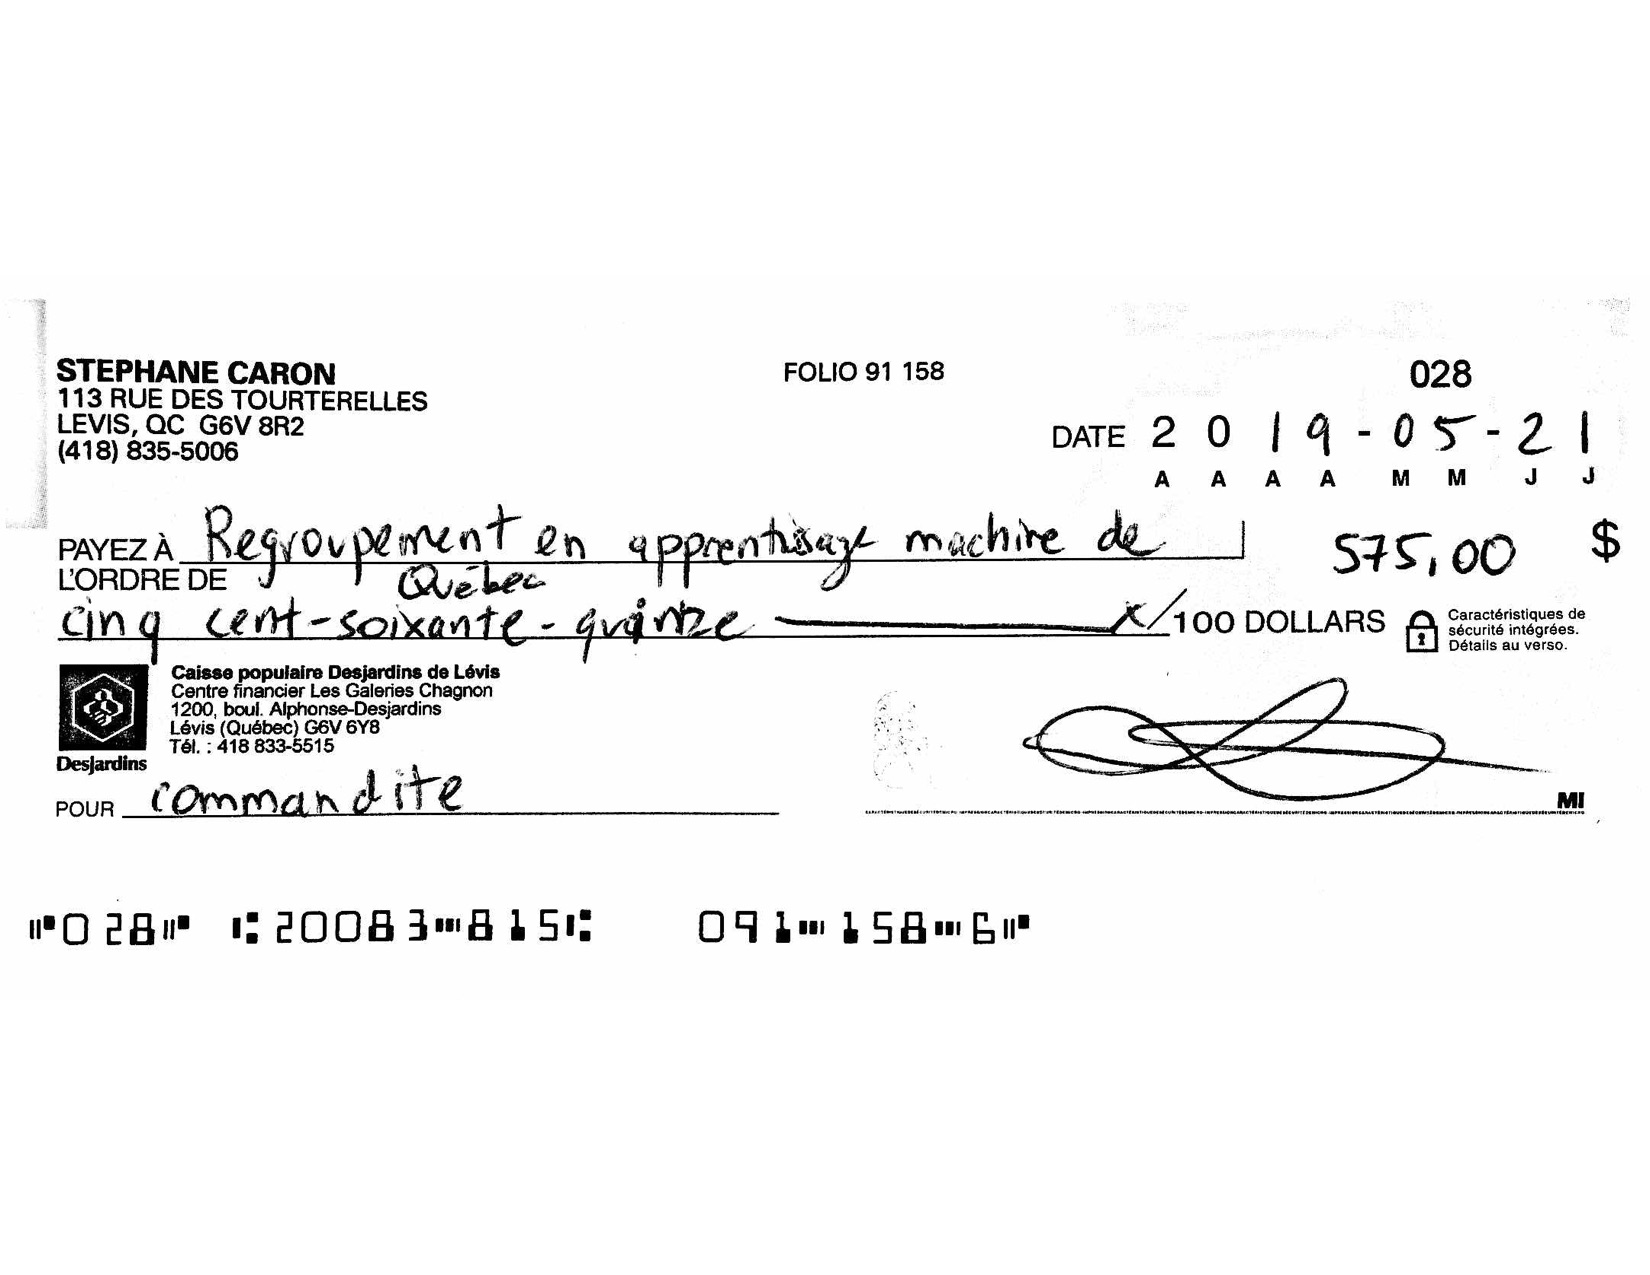 STEPHANE CARON
113 RUE DES TOURTERELLES
LEVIS, QC G6V 8R2
(418) 835-5006
FOLIO 91 158
028
DATE 2019-05-21
A A A A M M J J
PAYEZ À L'ORDRE DE Regroupement en apprentissage machine de
Québec
575,00 $
cinq cent-soixante-quinze x/100 DOLLARS
Caractéristiques de
sécurité intégrées.
Détails au verso.
Caisse populaire Desjardins de Lévis
Centre financier Les Galeries Chagnon
1200, boul. Alphonse-Desjardins
Lévis (Québec) G6V 6Y8
Tél. : 418 833-5515
Desjardins
POUR commandite
MI
⑈028⑈ ⑆20083⑉815⑆ 091⑉158⑉6⑈